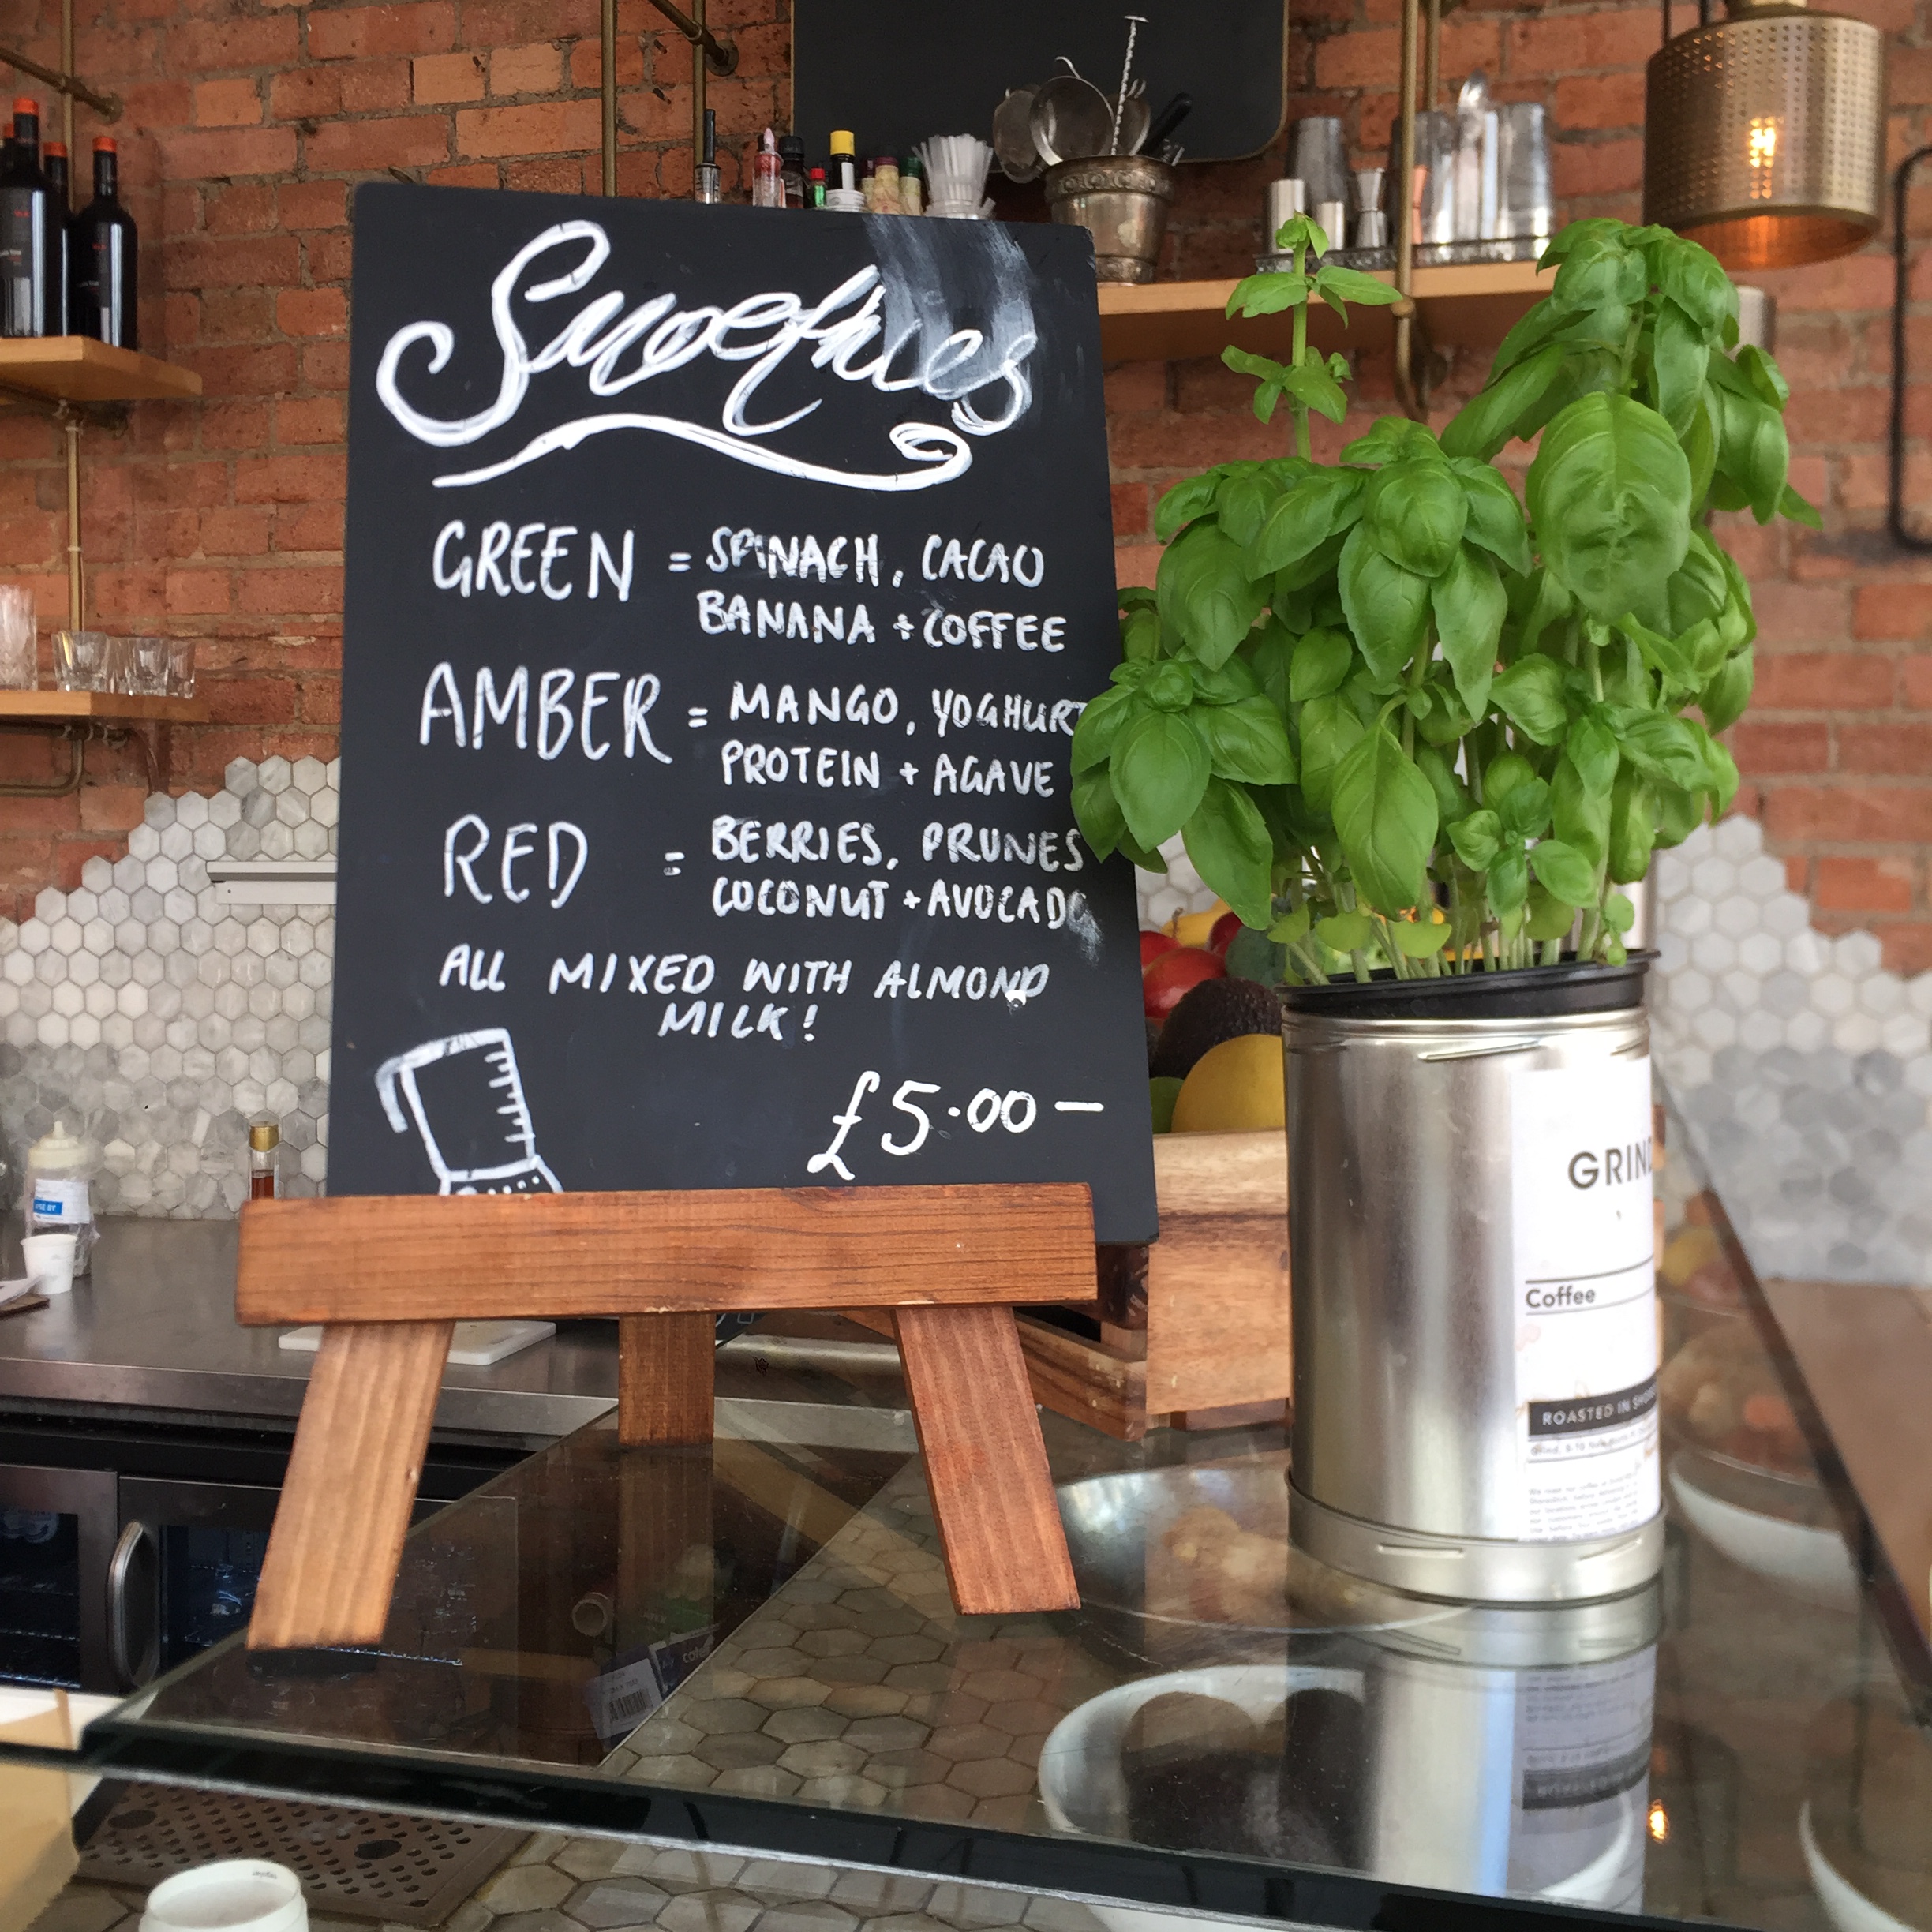 Smoothies
GREEN = SPINACH, CACAO
BANANA + COFFEE
AMBER = MANGO, YOGHURT
PROTEIN + AGAVE
RED = BERRIES, PRUNES
COCONUT + AVOCADO
ALL MIXED WITH ALMOND
MILK!
£5.00 —
GRIND
Coffee
ROASTED IN